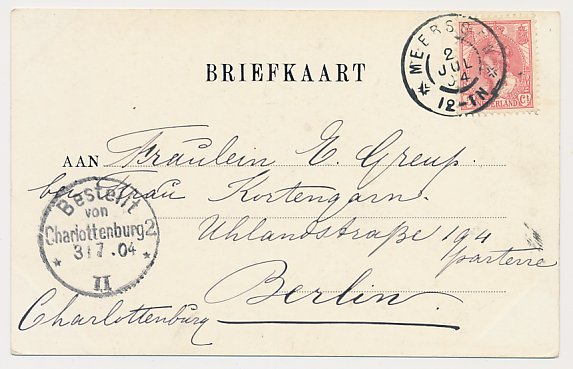 BRIEFKAART
MEERSSEN
2
JUL
04
12-1N
NEDERLAND
AAN Fräulein E. Greup.
bei Frau Kortengarn.
Uhlandstraße 194
parterre
Berlin.
Charlottenburg
Bestellt
von
Charlottenburg 2
3 1/7.04
II